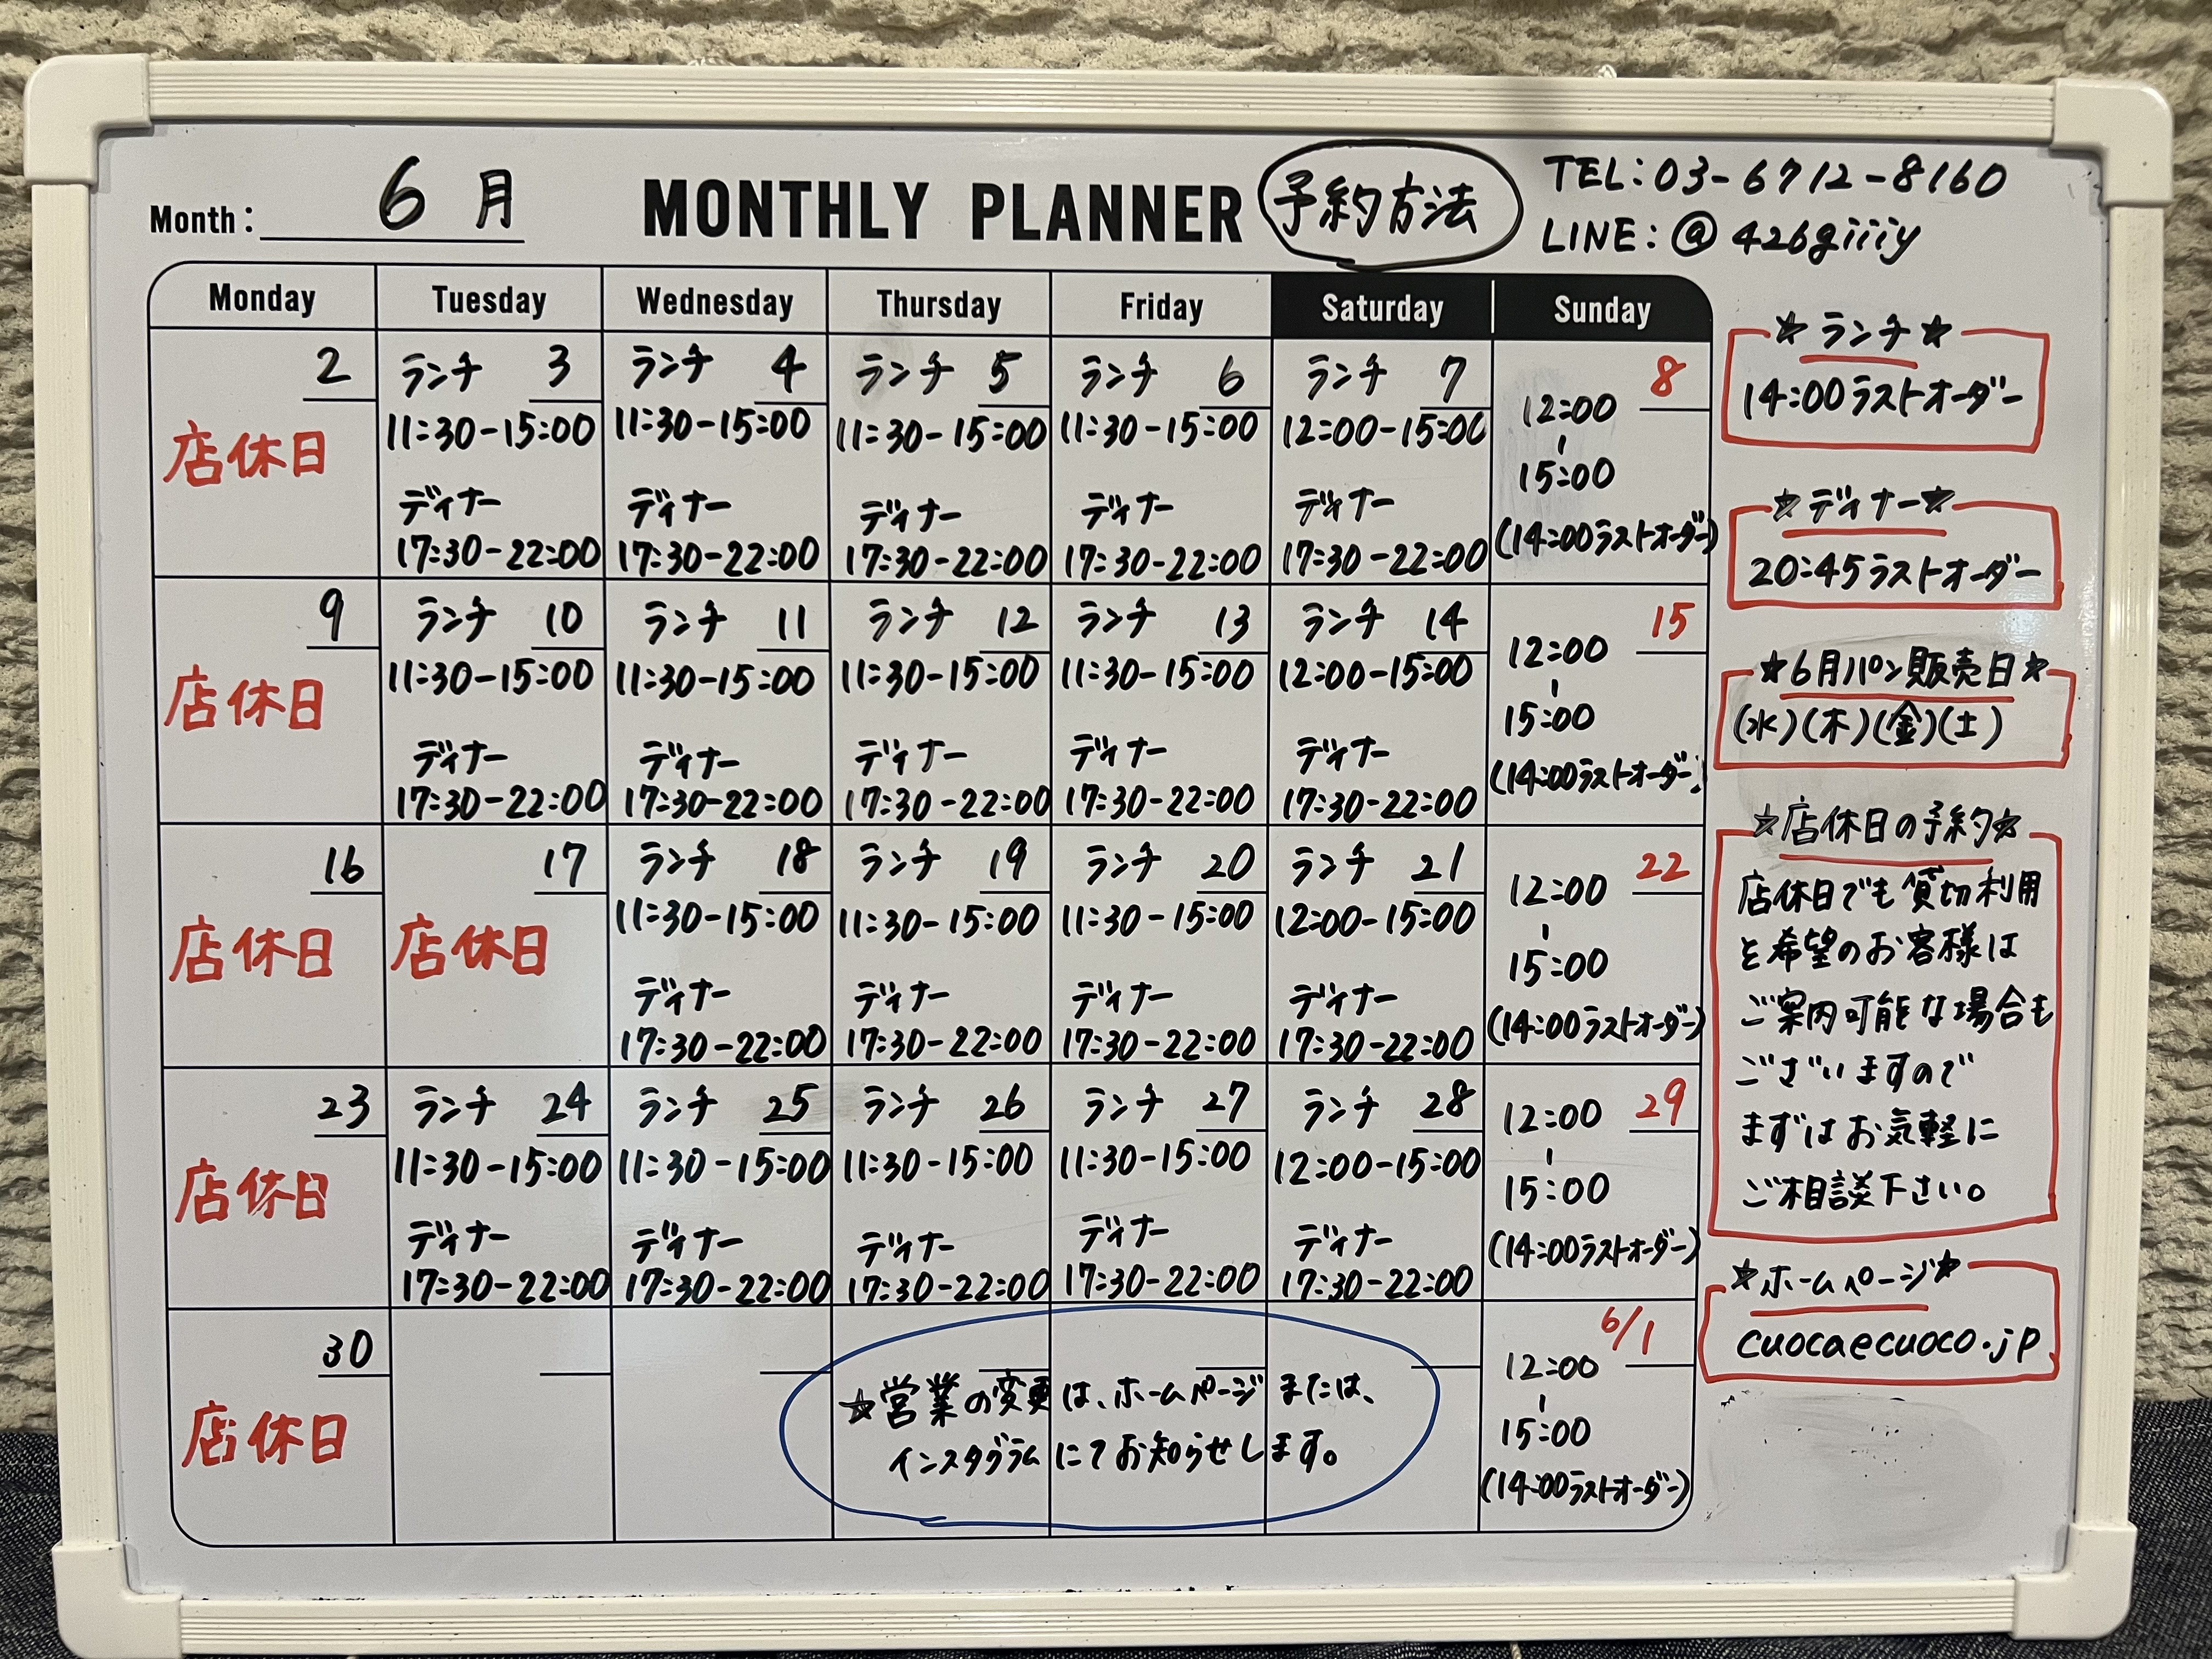 Month: 6 月
MONTHLY PLANNER
予約方法
TEL:03-6712-8160
LINE:@426giiiy
Monday Tuesday Wednesday Thursday Friday Saturday Sunday
2
店休日
ランチ 3
11:30-15:00
ディナー
17:30-22:00
ランチ 4
11:30-15:00
ディナー
17:30-22:00
ランチ 5
11:30-15:00
ディナー
17:30-22:00
ランチ 6
11:30-15:00
ディナー
17:30-22:00
ランチ 7
12:00-15:00
ディナー
17:30-22:00
8
12:00
-
15:00
(14:00ラストオーダー)
9
店休日
ランチ 10
11:30-15:00
ディナー
17:30-22:00
ランチ 11
11:30-15:00
ディナー
17:30-22:00
ランチ 12
11:30-15:00
ディナー
17:30-22:00
ランチ 13
11:30-15:00
ディナー
17:30-22:00
ランチ 14
12:00-15:00
ディナー
17:30-22:00
15
12:00
-
15:00
(14:00ラストオーダー)
16
店休日
17
店休日
ランチ 18
11:30-15:00
ディナー
17:30-22:00
ランチ 19
11:30-15:00
ディナー
17:30-22:00
ランチ 20
11:30-15:00
ディナー
17:30-22:00
ランチ 21
12:00-15:00
ディナー
17:30-22:00
22
12:00
-
15:00
(14:00ラストオーダー)
23
店休日
ランチ 24
11:30-15:00
ディナー
17:30-22:00
ランチ 25
11:30-15:00
ディナー
17:30-22:00
ランチ 26
11:30-15:00
ディナー
17:30-22:00
ランチ 27
11:30-15:00
ディナー
17:30-22:00
ランチ 28
12:00-15:00
ディナー
17:30-22:00
29
12:00
-
15:00
(14:00ラストオーダー)
30
店休日
☆営業の変更は、ホームページまたは、
インスタグラムにてお知らせします。
6/1
12:00
-
15:00
(14:00ラストオーダー)
☆ランチ☆
14:00ラストオーダー
☆ディナー☆
20:45ラストオーダー
☆6月パン販売日☆
(水)(木)(金)(土)
☆店休日の予約☆
店休日でも貸切利用
を希望のお客様は
ご案内可能な場合も
ございますので
まずはお気軽に
ご相談下さい。
☆ホームページ☆
cuocaecuoco.jp